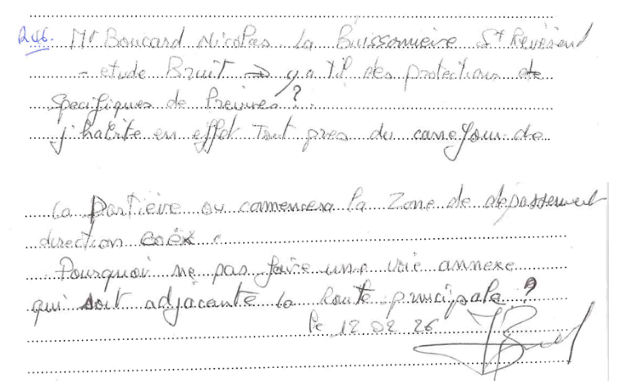 R46. Mr Boucard Nicolas la Buissonnière St Révérend
- etude Bruit → y a t'il des protections de
specifiques de Prévues ?
j'habite en effet tout près du carrefour de
la Partière ou commencera la Zone de dépassement
direction Coëx.
Pourquoi ne pas faire une voie annexe
qui soit adjacante la Route principale ?
le 12 02 26